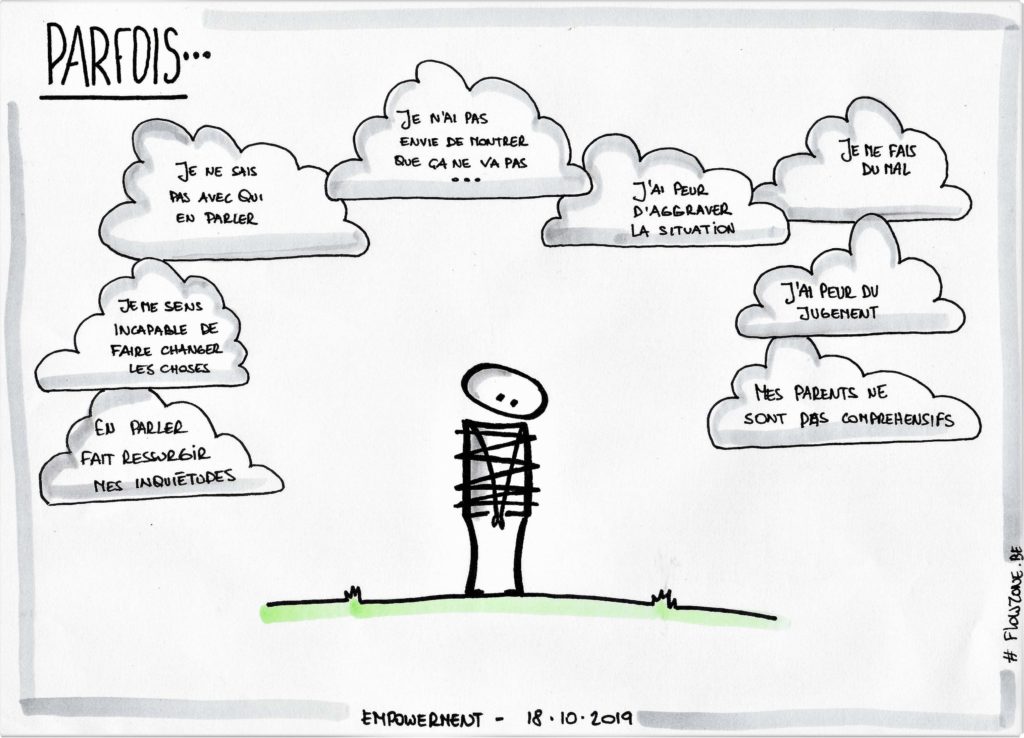 PARFOIS...
JE N'AI PAS
ENVIE DE MONTRER
QUE ÇA NE VA PAS
...
JE NE SAIS
PAS AVEC QUI
EN PARLER
J'AI PEUR
D'AGGRAVER
LA SITUATION
JE ME FAIS
DU MAL
JE ME SENS
INCAPABLE DE
FAIRE CHANGER
LES CHOSES
J'AI PEUR DU
JUGEMENT
EN PARLER
FAIT RESSURGIR
MES INQUIÉTUDES
MES PARENTS NE
SONT PAS COMPREHENSIFS
EMPOWERMENT - 18.10.2019
# FLOWZONE.BE